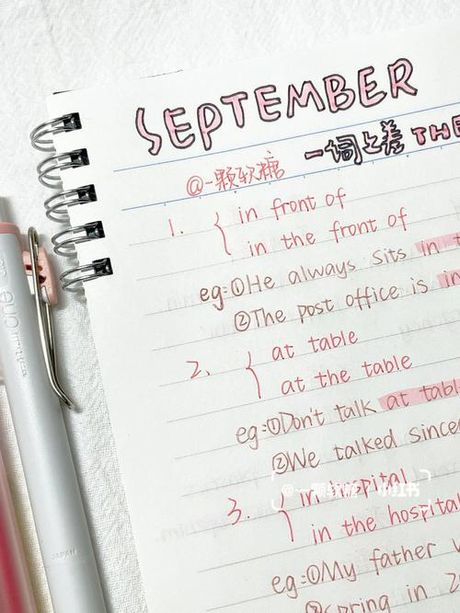 SEPTEMBER
一词之差 THE
@一颗软糖
1. { in front of
in the front of
eg:①He always sits in t
②The post office is in
2. { at table
at the table
eg:①Don't talk at tabl
②We talked since
3. { in hospital
in the hospital
eg:①My father
②Spring in 2
One
JAPAN